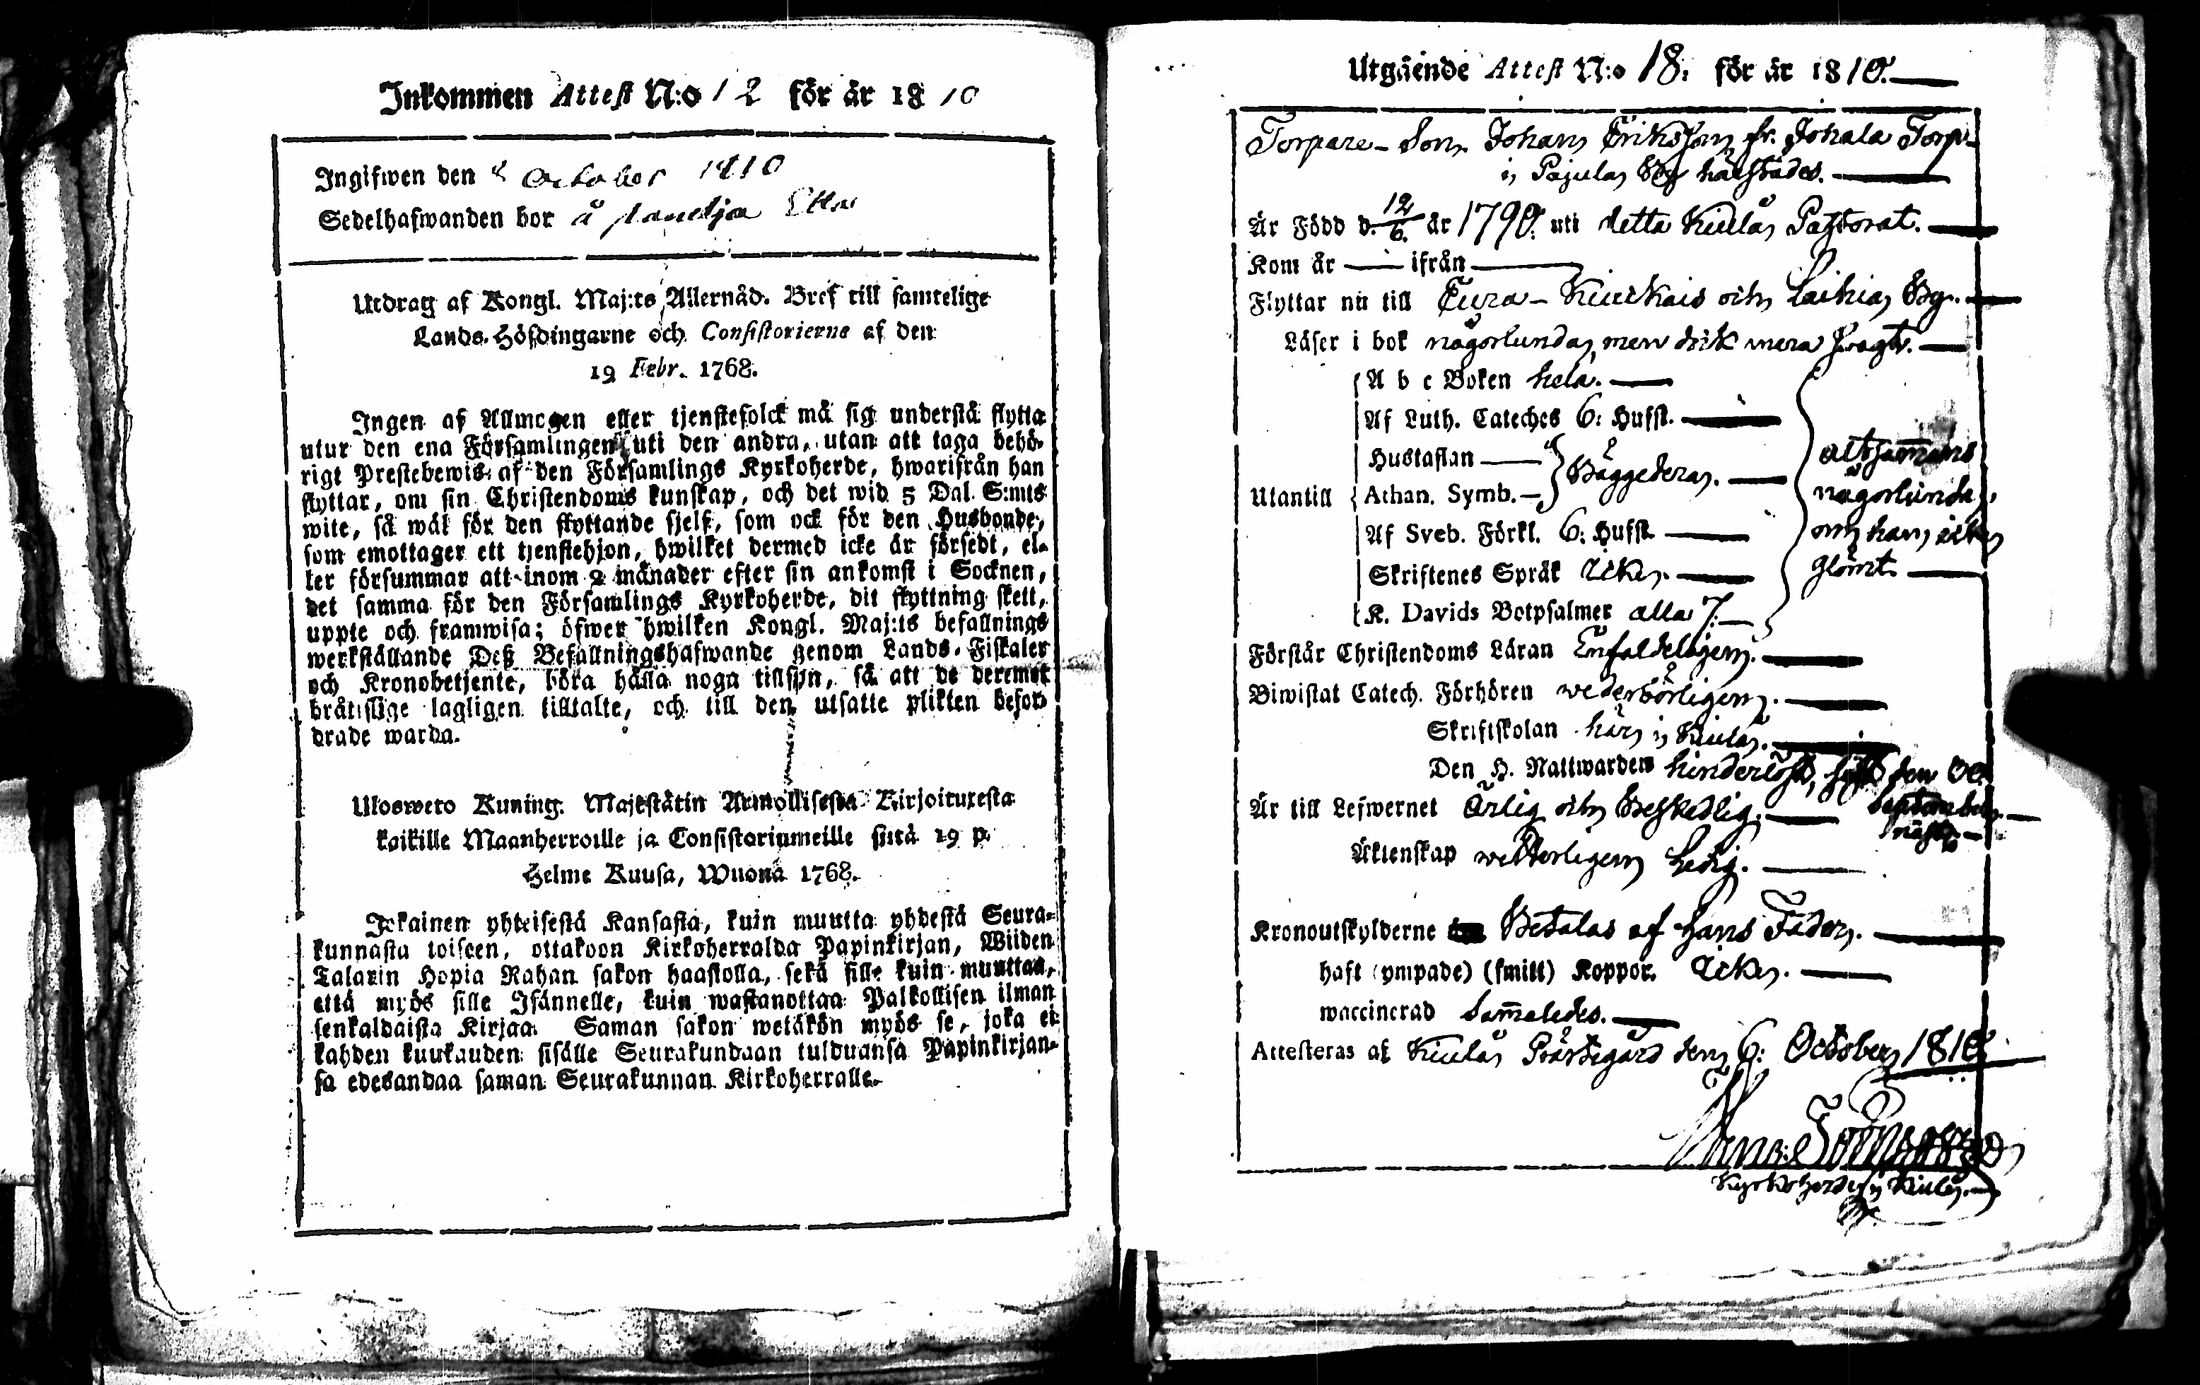 Inkommen Attest N:o 12 för år 1810
Ingifwen den 8 October 1810
Sedelhafwanden bor å
Utdrag af Kongl. Maj:ts Allernåd. Bref till samtelige
Lands-Höfdingarne och Consistorierne af den
19 Febr. 1768.
Ingen af Allmogen eller tjenstefolck må sig understå flytta
utur den ena Församlingen uti den andra, utan att taga behö-
rigt Prestebewis af den Församlings Kyrkoherde, hwarifrån han
flyttar, om sin Christendoms kunskap, och det wid 5 Dal. S:mts
wite, så wäl för den flyttande sjelf, som ock för den Husbonde,
som emottager ett tjenstehjon, hwilket dermed icke är försedt, el-
ler försummar att inom 2 månader efter sin ankomst i Socknen,
det samma för den Församlings Kyrkoherde, dit flyttning skett,
uppte och framwisa; öfwer hwilken Kongl. Maj:ts befallnings
werkställande Deß Befallningshafwande genom Lands-Fiskaler
och Kronobetjente, böra hålla noga tillsyn, så att de deremot
bråtislige lagligen tilltalte, och till den utsatte plikten befor-
drade warda.
Ulosweto Kuning. Majestätin Armollisesta Kirjoituxesta
kaikille Maanherroille ja Consistoriumeille siitä 19 p.
Helme Kuusa, Wuona 1768.
Jokainen yhteisestä Kansasta, kuin muutta yhdestä Seura-
kunnasta toiseen, ottakoon Kirkoherralda Papinkirjan, Wiiden
Talarin Hopia Rahan sakon haastolla, sekä sille kuin muuttaa,
että myös sille Isännelle, kuin wastanottaa Palkollisen ilman
senkaldaista Kirjaa. Saman sakon wetäkön myös se, joka ei
kahden kuukauden sisälle Seurakundaan tulduansa Papinkirjan-
sa edesandaa saman Seurakunnan Kirkoherralle.
Utgående Attest N:o 18. för år 1810.
Torpare-Son Johan Eriksson fr. Johala Torp
i Pajula By härstädes.
Är Född d. 12/6. år 1790. uti detta Kiulå Pastorat.
Kom år — ifrån —
Flyttar nu till Eura-Kiuckais och Laihia By.
Läser i bok någorlunda, men drik mera fragtr.
A b c Boken hela.
Af Luth. Cateches 6: Hufst.
Hustaflan
Bäggedera.
Utantill Athan. Symb.
Af Sveb. Förkl. 6: Hufst.
Skriftenes Språk Icke.
K. Davids Botpsalmer alla 7.
altsammans
någorlunda,
om han icke
glömt.
Förstår Christendoms Läran Enfaldeligen.
Biwistat Catech. Förhören wederbörligen.
Skriftskolan här i Kiula.
Den H. Nattwarden hinderlöst, sist den 30
September
näst.
Är till Lefwernet Ärlig och Beskedlig.
Äktenskap witterligen Ledig.
Kronoutskylderne Betalas af hans Fader.
haft (ympade) (smitt) Koppor. Icke.
waccinerad Sammaledes.
Attesteras af Kiulå Prästegård den 6: October 1810.
Kyrkoherde i Kiulå.